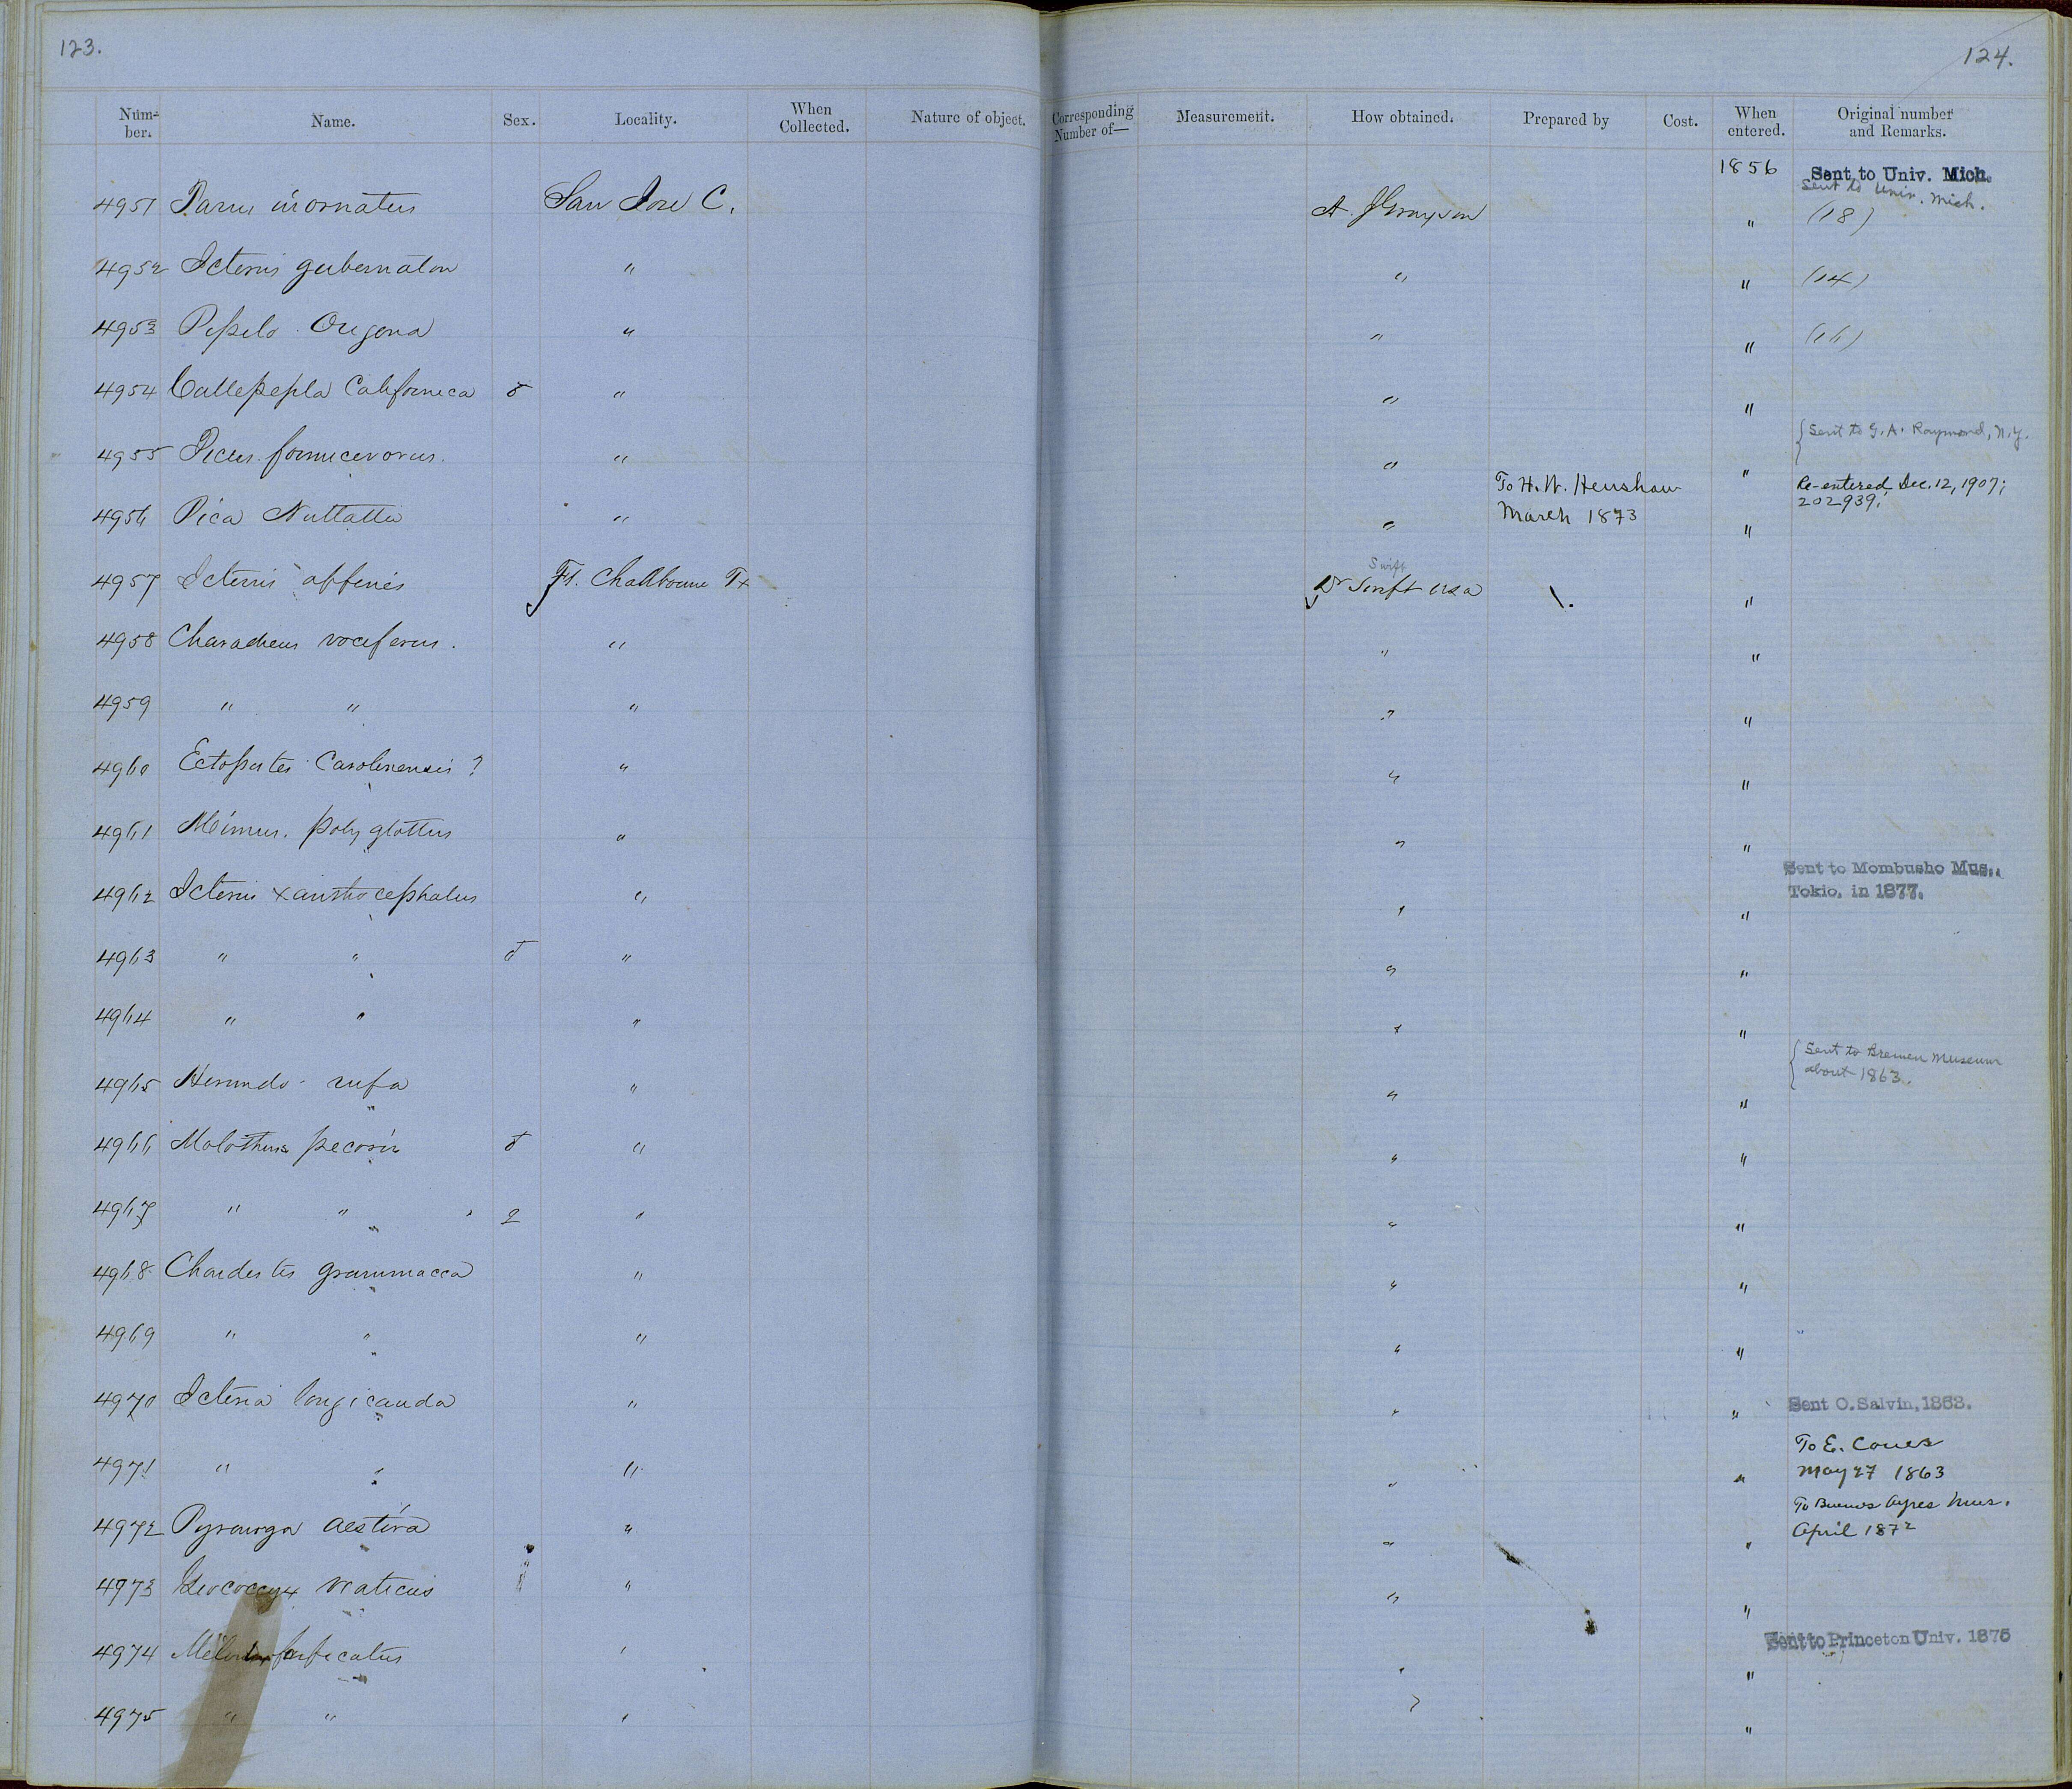 123.
124.
Num-ber. Name. Sex. Locality. When Collected. Nature of object. Corresponding Number of— Measurement. How obtained. Prepared by Cost. When entered. Original number and Remarks.
1856 Sent to Univ. Mich.
Sent to Univ. Mich.
4951 Parus inornatus San Jose C. A. J Grayson " (18)
4952 Icterus gubernator " " " (14)
4953 Pipilo Oregona " " " (16)
4954 Callepepla Californica ♂ " " "
{Sent to G. A. Raymond, N.Y.
4955 Picus formicivorus. " " "
To H. W. Henshaw March 1873
Re-entered Dec. 12, 1907; 202939.
4956 Pica Nuttalli " " "
Swift
4957 Icterus affinis Ft. Chadbourne Tx Dr Swift USA "
4958 Charadrius vociferus. " " "
4959 " " " " "
4960 Ectopistes Carolinensis ? " " "
4961 Mimus. polyglottus " " "
Sent to Mombusho Mus., Tokio, in 1877.
4962 Icterus xanthocephalus " " "
4963 " " ♂ " " "
4964 " " " " "
{Sent to Bremen Museum about 1863.
4965 Hirundo rufa " " "
4966 Molothrus pecoris ♂ " " "
4967 " " ♀ " " "
4968 Chondestes grammaca " " "
4969 " " " " "
4970 Icteria longicauda " " " Sent O. Salvin, 1863.
4971 " " " " " To E. Coues May 27 1863
To Buenos Ayres Mus. April 1872
4972 Pyranga aestiva " " "
4973 Geococcyx viaticus " " "
Sent to Princeton Univ. 1875
4974 forficatus " " "
4975 " " " " "